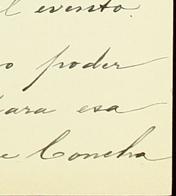 l evento.
o poder
para esa
e Concha